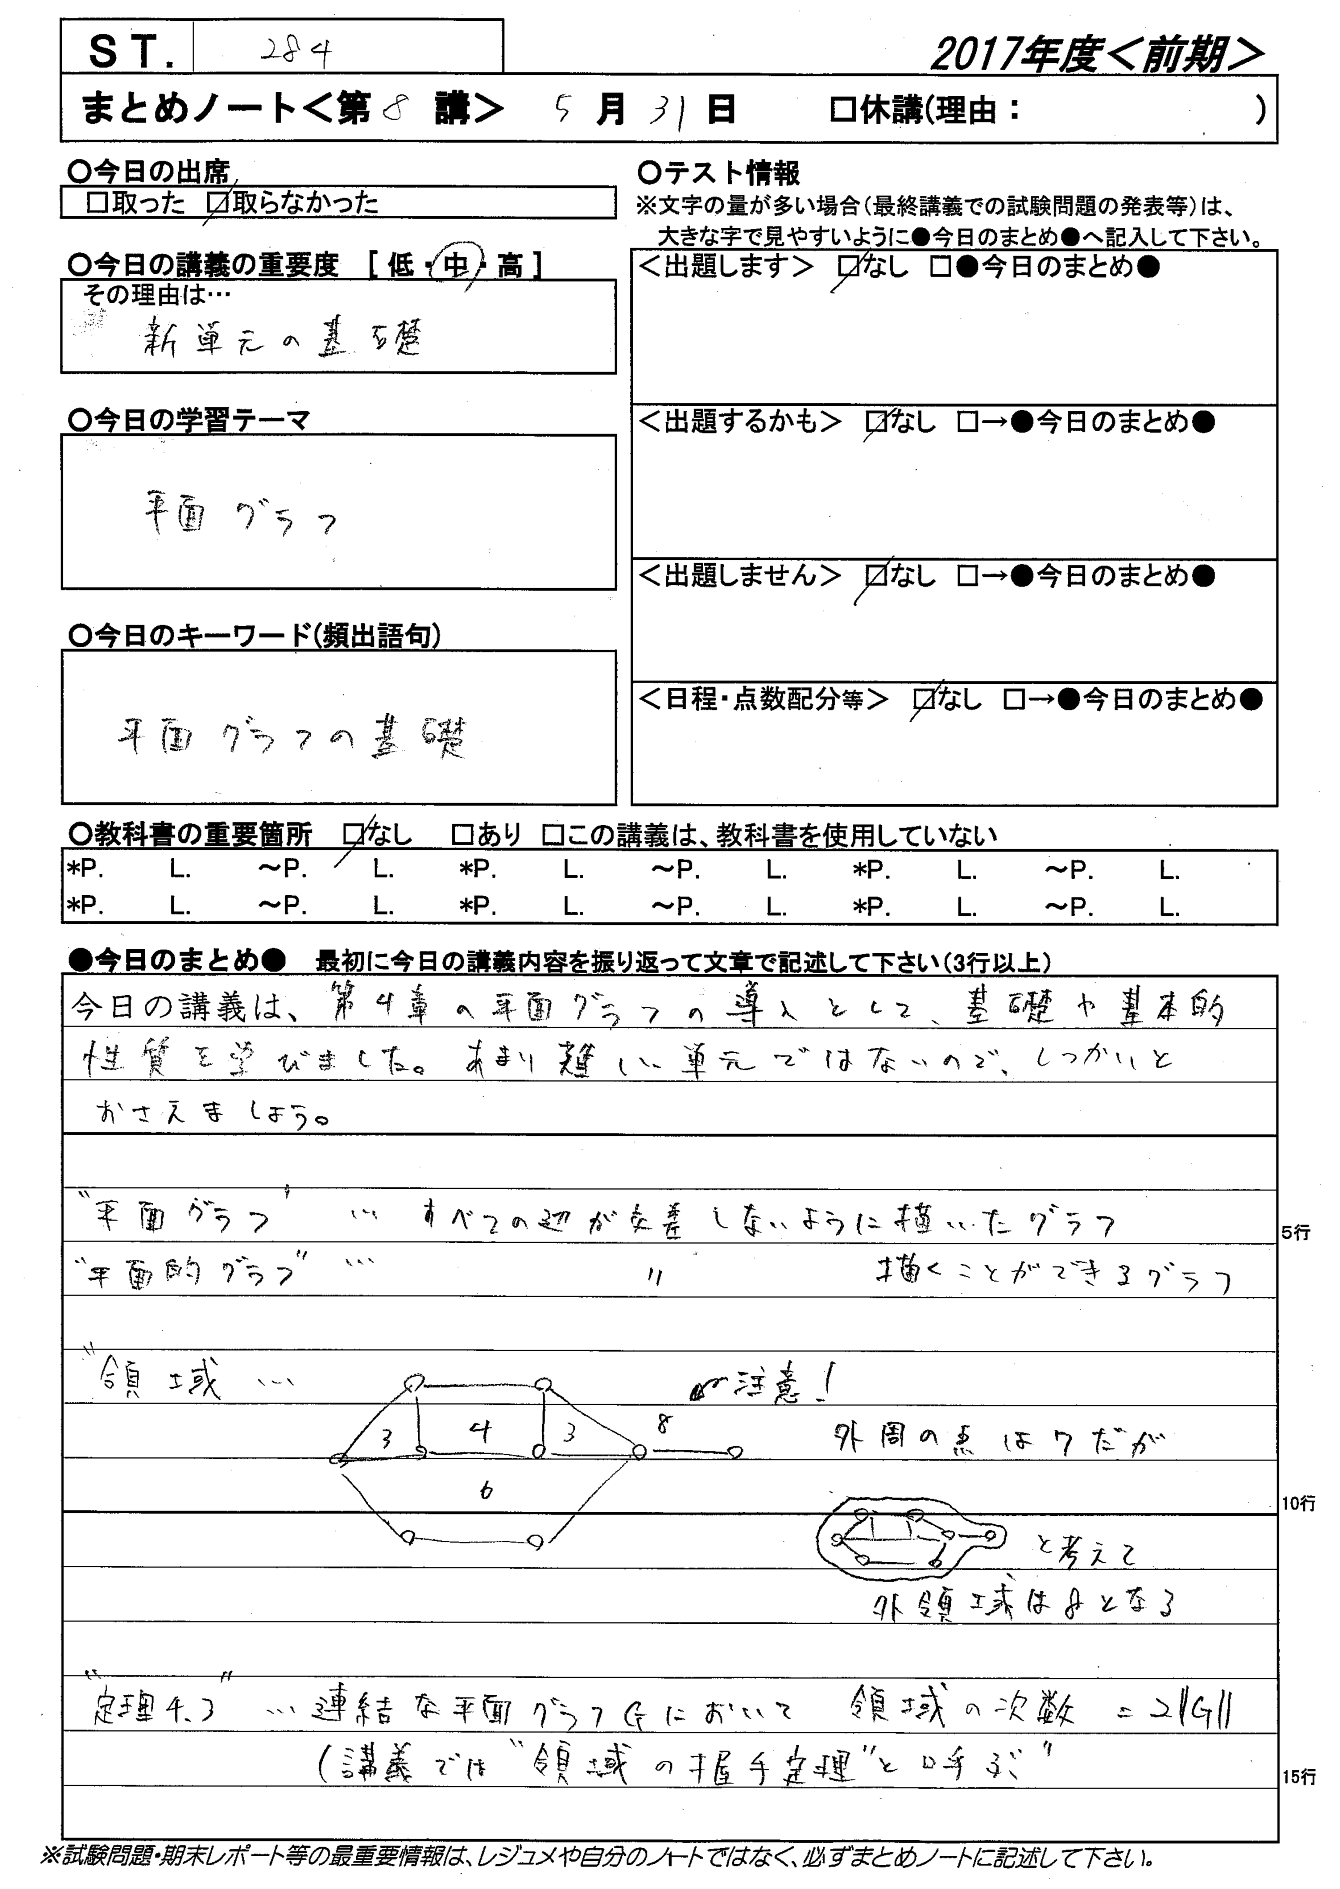 ST. 284
2017年度<前期>
まとめノート<第8講> 5月31日 □休講(理由: )
○今日の出席
□取った ☑取らなかった
○今日の講義の重要度 [ 低・中・高 ]
その理由は…
新単元の基礎
○今日の学習テーマ
平面グラフ
○今日のキーワード(頻出語句)
平面グラフの基礎
○テスト情報
※文字の量が多い場合(最終講義での試験問題の発表等)は、
大きな字で見やすいように●今日のまとめ●へ記入して下さい。
<出題します> ☑なし □●今日のまとめ●
<出題するかも> ☑なし □→●今日のまとめ●
<出題しません> ☑なし □→●今日のまとめ●
<日程・点数配分等> ☑なし □→●今日のまとめ●
○教科書の重要箇所 ☑なし □あり □この講義は、教科書を使用していない
*P. L. ～P. L. *P. L. ～P. L. *P. L. ～P. L.
*P. L. ～P. L. *P. L. ～P. L. *P. L. ～P. L.
●今日のまとめ● 最初に今日の講義内容を振り返って文章で記述して下さい(3行以上)
今日の講義は、第4章の平面グラフの導入として、基礎や基本的
性質を学びました。あまり難しい単元ではないので、しっかりと
おさえましょう。
"平面グラフ" … すべての辺が交差しないように描いたグラフ
5行
"平面的グラフ" … 〃 描くことができるグラフ
"領域 …
注意!
3 4 3 8
外周の点は7だが
6
10行
と考えて
外領域は8となる
"定理4.3" … 連結な平面グラフGにおいて 領域の次数 = 2||G||
(講義では"領域の握手定理"と呼ぶ"
15行
※試験問題・期末レポート等の最重要情報は、レジュメや自分のノートではなく、必ずまとめノートに記述して下さい。